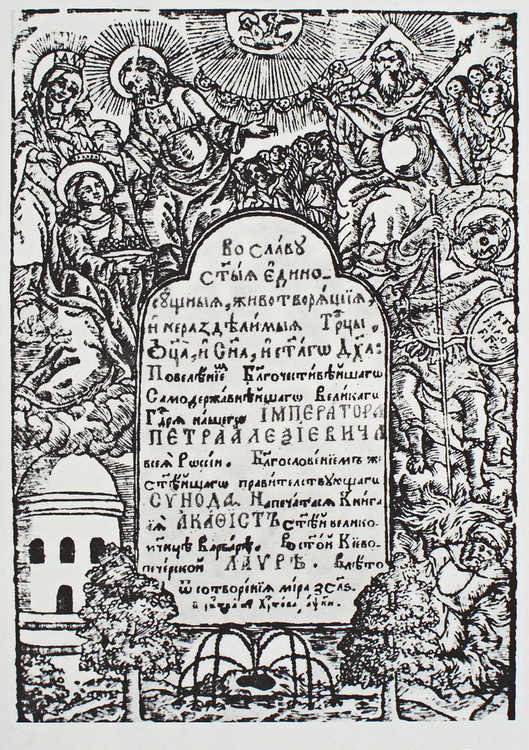 Во сла́ву
ст҃ы́ѧ є҆дино-
су́щныѧ, животворѧ́щїѧ,
и҆ нераздѣли́мыѧ Трⷪ҇цы,
Ѻ҆ц҃а̀, и҆ Сн҃а, и҆ ст҃а́гѡ Дх҃а:
Повелѣ́нїемъ Бл҃гочести́вѣйшагѡ
Самодержа́внѣйшагѡ Вели́кагѡ
Гдⷭ҇рѧ на́шегѡ ІМПЕРАТОРА
ПЕТРА АЛЕѮІЕВИЧА
всеѧ̀ Рѡссі́и. Бл҃гослове́нїемъ же
ст҃ѣ́йшагѡ прави́телствующагѡ
СѴНОДА. Напеча́тасѧ Кни́га
сїѧ̀ АКАѲІСТЪ ст҃ѣ́й велико-
м҃ницѣ Варва́рѣ. Во ст҃о́й Кїево-
пече́рской ЛАѴРѢ. В лѣ́то
ѿ сотворе́нїѧ мі́ра